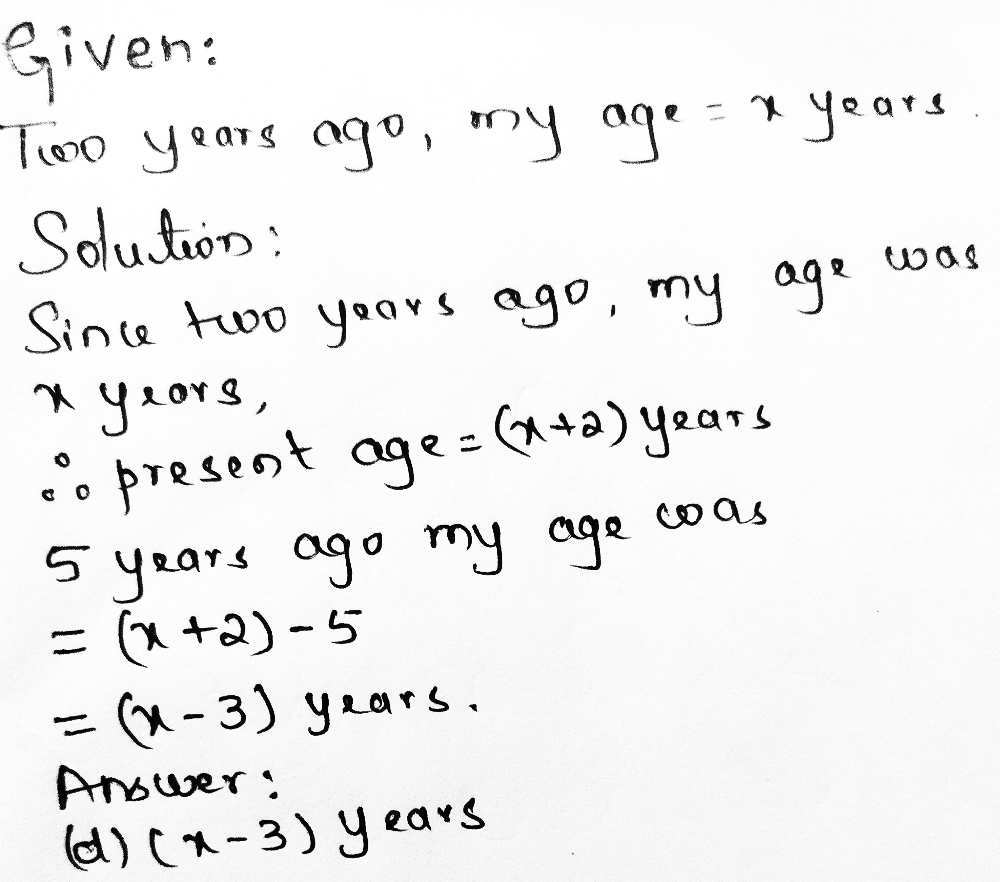 Given:
Two years ago, my age = x years.
Solution:
Since two years ago, my age was
x years,
∴ present age = (x+2) years
5 years ago my age was
= (x+2) - 5
= (x-3) years.
Answer:
(d) (x-3) years